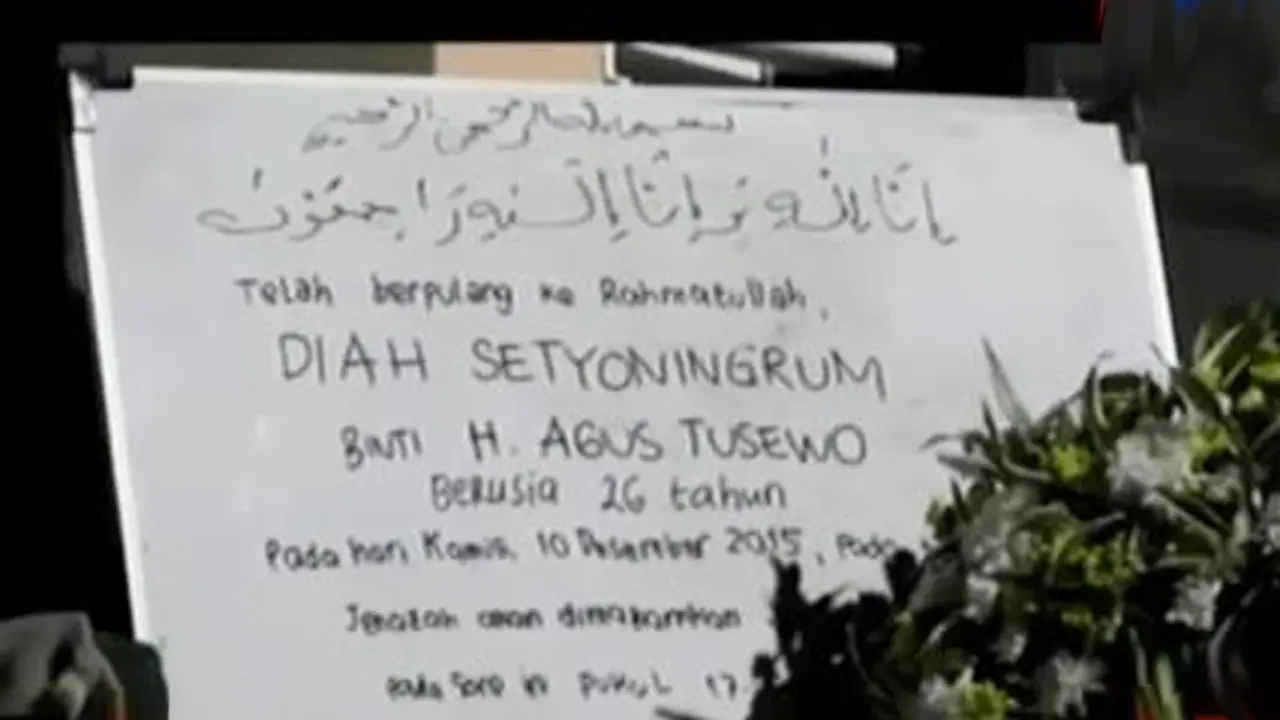 بسم الله الرحمن الرحيم
إِنَّا لِلّٰهِ وَإِنَّا إِلَيْهِ رَاجِعُوْنَ
Telah berpulang ke Rahmatullah,
DIAH SETYONINGRUM
BINTI H. AGUS TUSEWO
Berusia 26 tahun
Pada hari Kamis, 10 Desember 2015, Pada
Jenazah akan dimakamkan
pada sore ini pukul 17.